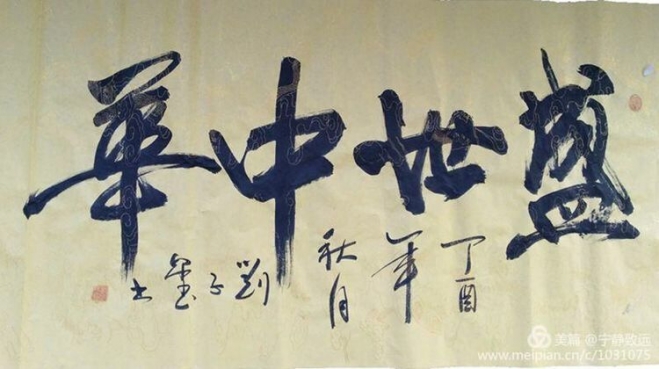 盛世中華
丁酉年秋月
劉子书
美篇 @宁静致远
www.meipian.cn/c/1031075